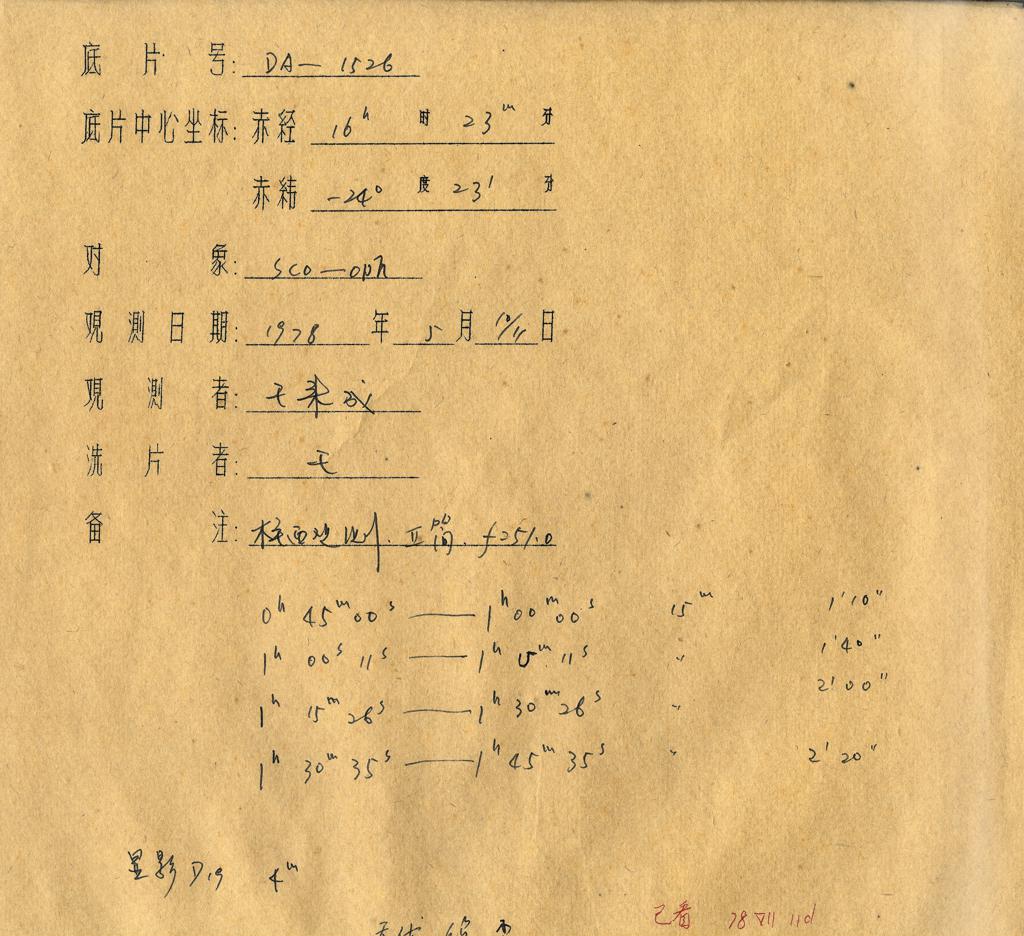 底片号: DA—1526
底片中心坐标: 赤经 16ʰ 时 23ᵐ 分
赤緯 -24° 度 23′ 分
对象: sco—oph
观测日期: 1978 年 5 月 10/11 日
观测者: 王
洗片者: 王
备注: f=251.0
0ʰ 45ᵐ 00ˢ —— 1ʰ 00ᵐ 00ˢ 15ᵐ 1′10″
1ʰ 00ˢ 11ˢ —— 1ʰ 15ᵐ 11ˢ 〃 1′40″
1ʰ 15ᵐ 26ˢ —— 1ʰ 30ᵐ 26ˢ 〃 2′00″
1ʰ 30ᵐ 35ˢ —— 1ʰ 45ᵐ 35ˢ 〃 2′20″
显影 D19 4ᵐ
已看 78 VII 11d